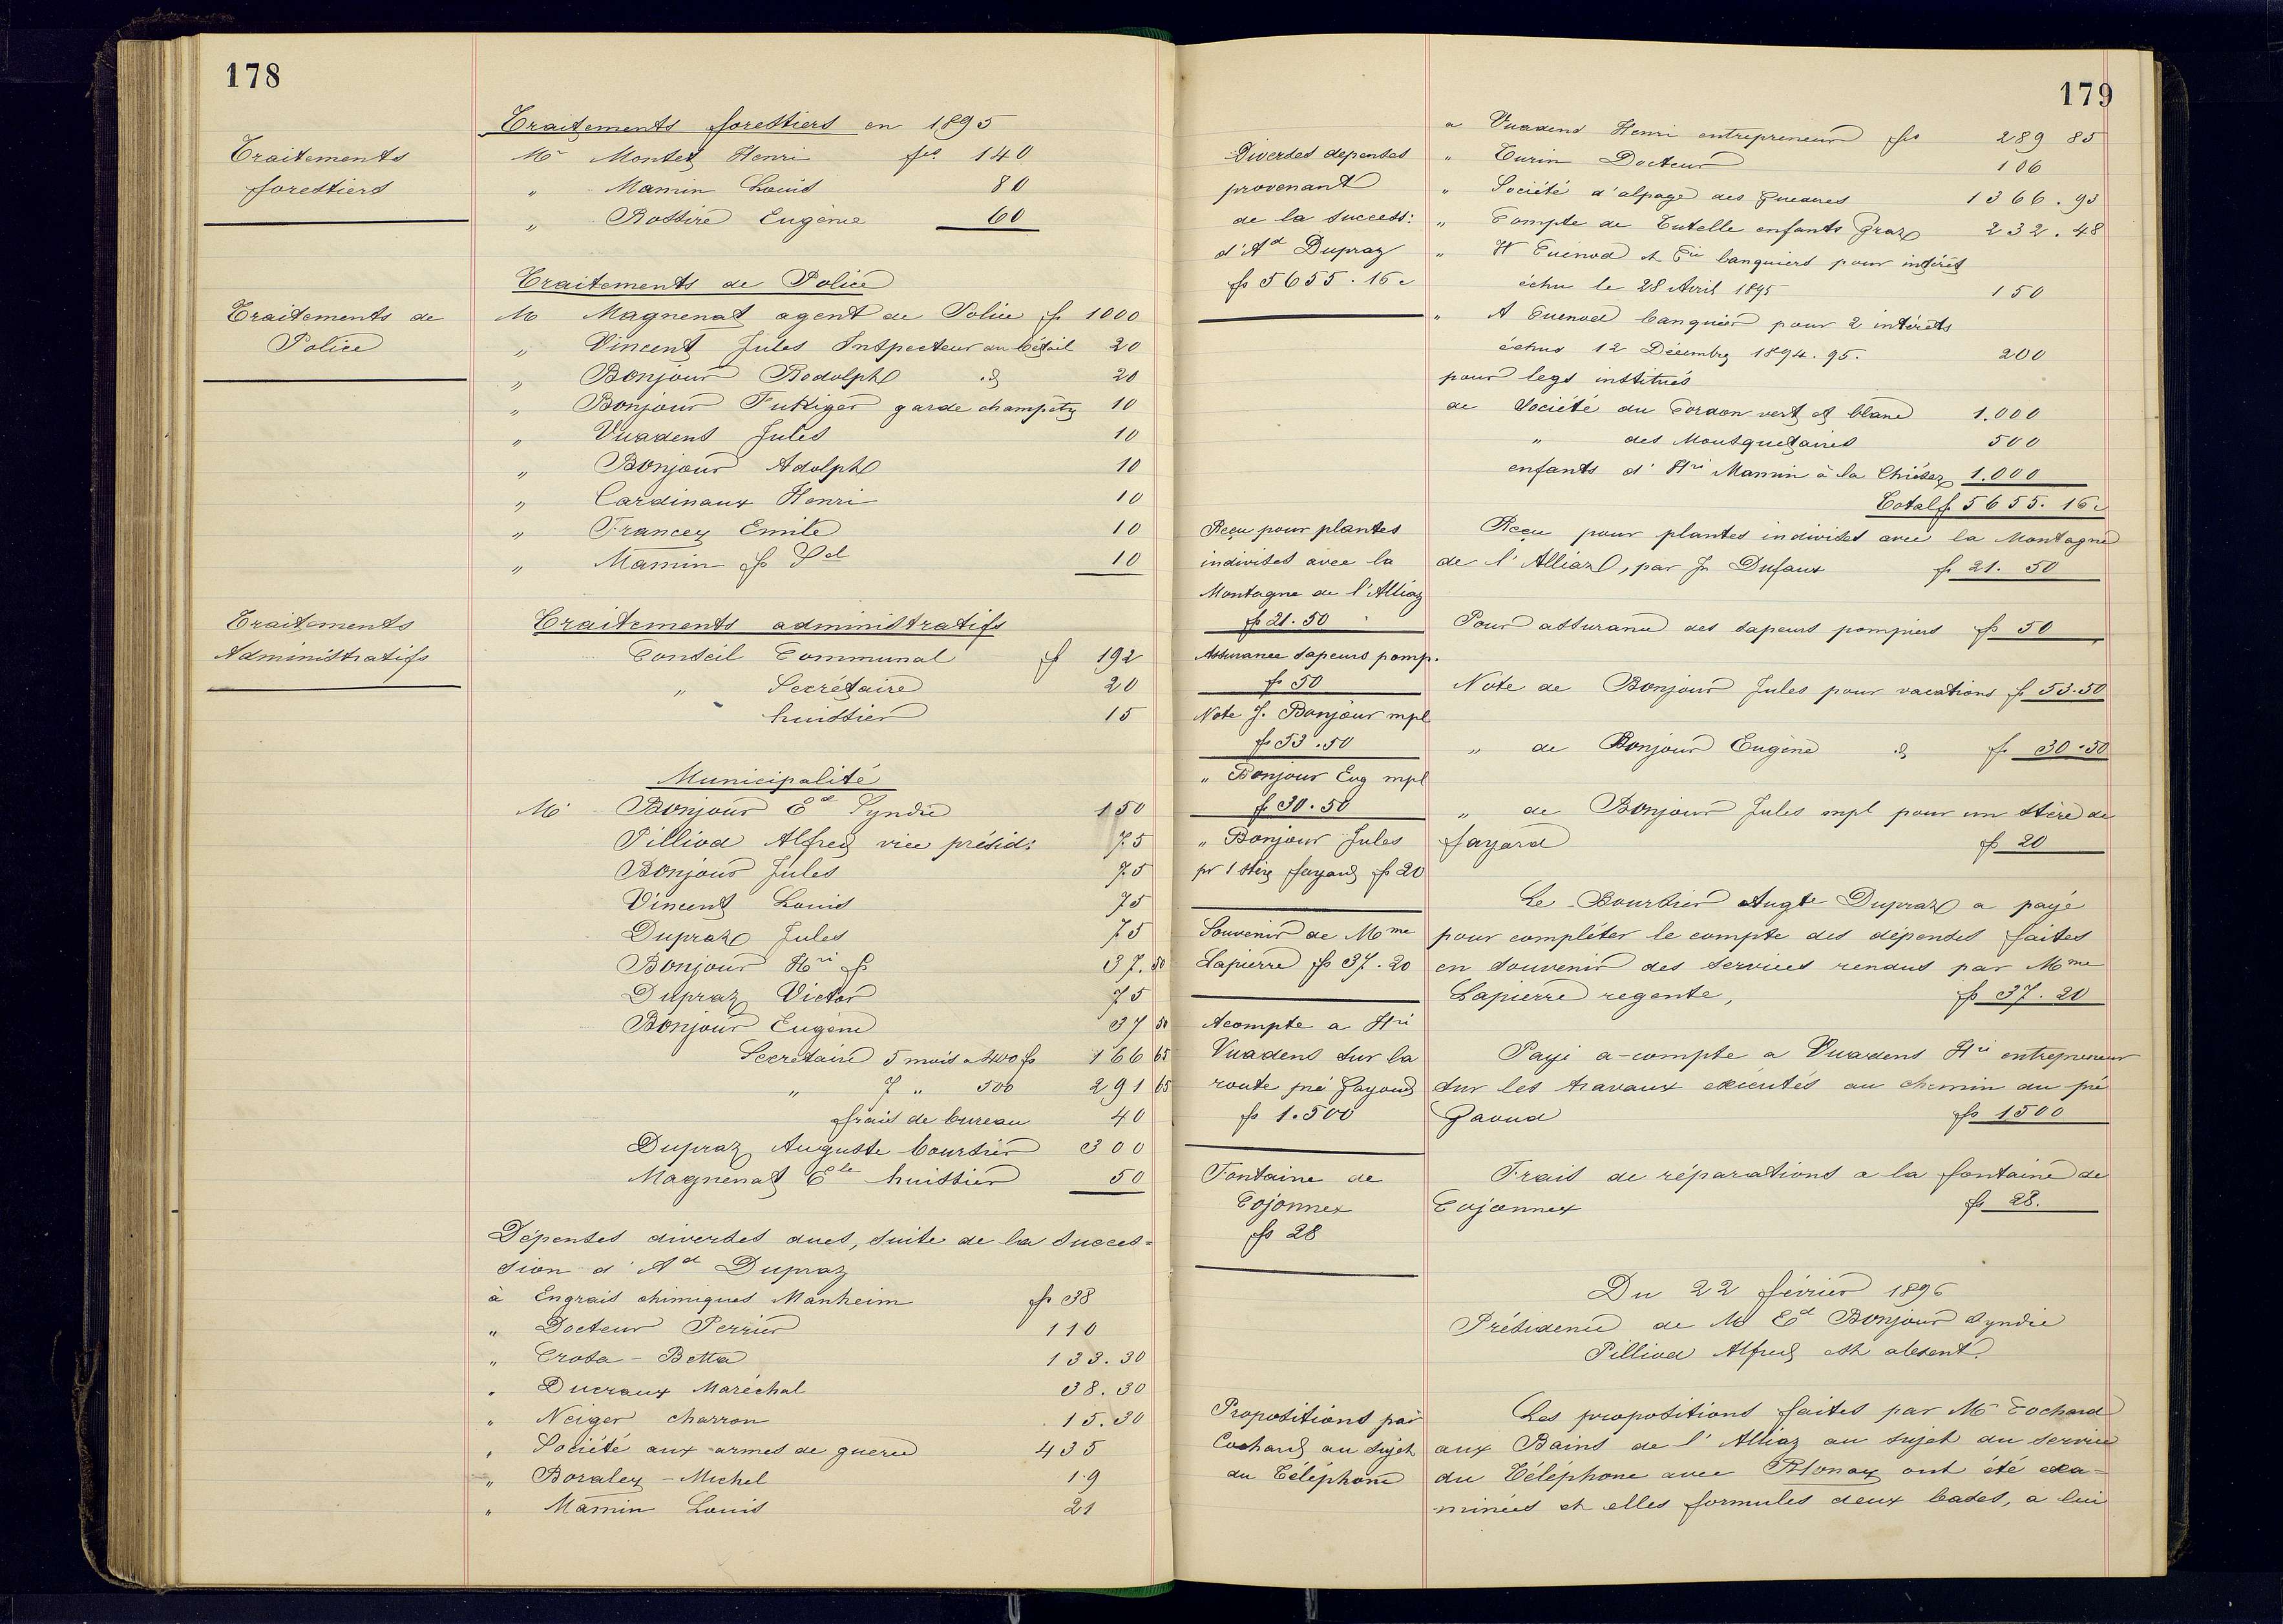 178
Traitements forestiers en 1895
Traitements
forestiers
Mr Montet Henri frs 140
" Mamin Louis 80
" Rossire Eugène 60
Traitements de Police
Traitements de
Police
M Magnenat agent de Police fr 1000
" Vincent Jules Inspecteur du bétail 20
" Bonjour Rodolphe id 20
" Bonjour garde champêtre 10
" Vuadens Jules 10
" Bonjour Adolphe 10
" Cardinaux Henri 10
" Francey Emile 10
" Mamin fs 10
Traitements
Administratifs
Traitements administratifs
Conseil Communal fr 192
" Secrétaire 20
huissier 15
Municipalité
Mr Bonjour Ed Syndic 150
Pilliod Alfred vice présid: 75
Bonjour Jules 75
Vincent Louis 75
Dupraz Jules 75
Bonjour Hri fs 37.50
Dupraz Victor 75
Bonjour Eugène 37 50
Secrétaire 5 mois a 400 fr 166 65
" 7 " 500 291 65
frais de bureau 40
Dupraz Auguste boursier 300
Magnenat Ele huissier 50
Dépenses diverses dues, suite de la succes=
sion d'Ad Dupraz
à Engrais chimiques Manheim fr 38
" Docteur Perrier 110
" Crosa - Betta 133.30
" Ducraux Maréchal 38.30
" Neiger charron 15.30
" Société aux armes de guerre 435
" Boraley - Michel 19
" Mamin Louis 21
179
Diverses dépenses
provenant
de la success:
d'Ad Dupraz
fr 5655.16 c
a Vuadens Henri entrepreneur frs 289 85
" Turin Docteur 106
" Société d'alpage des Gueures 1366.93
" Compte de Tutelle enfants Graz 232.48
" W Cuénod et Cie banquiers pour intérêt
échu le 28 Avril 1895 150
" A Cuenod banquier pour 2 intérêts
échus 12 Décembre 1894.95. 200
pour legs institués
de Société du Cordon vert et blanc 1.000
" des Mousquetaires 500
enfants d'Hri Mamin à la Chiésaz 1.000
Total fr 5655.16 c
Reçu pour plantes
indivises avec la
Montagne de l'Alliaz
fr 21.50
Reçu pour plantes indivises avec la Montagne
de l'Alliaz, par Dufaux fr 21.50
Assurance sapeurs pomp.
fr 50
Pour assurance des sapeurs pompiers fr 50
Note J. Bonjour mpl
fr 53.50
Note de Bonjour Jules pour vacations fr 53.50
" Bonjour Eug mpl
fr 30.50
" de Bonjour Eugène id fr 30.50
" Bonjour Jules
pr 1 stère fayard fr 20
" de Bonjour Jules mpl pour un stère de
fayard fr 20
Souvenir de Mme
Lapierre fr 37.20
Le Boursier Augte Dupraz a payé
pour compléter le compte des dépenses faites
en souvenir des services rendus par Mme
Lapierre regente, fr 37.20
Acompte a Hri
Vuadens sur la
route pré
fr 1.500
Payé a-compte a Vuadens Hri entrepreneur
sur les travaux exécutés au chemin du pré
fr 1500
Fontaine de
Cojonnex
fr 28
Frais de réparations a la fontaine de
Cojonnex fr 28.
Du 22 février 1896
Présidence de Mr Ed Bonjour Syndic
Pilliod Alfred est absent.
Propositions par
Cochard au sujet
du Téléphone
Les propositions faites par Mr Cochard
aux Bains de l'Alliaz au sujet du service
du Téléphone avec Blonay ont été exa=
minées et elles formules deux bases, a lui